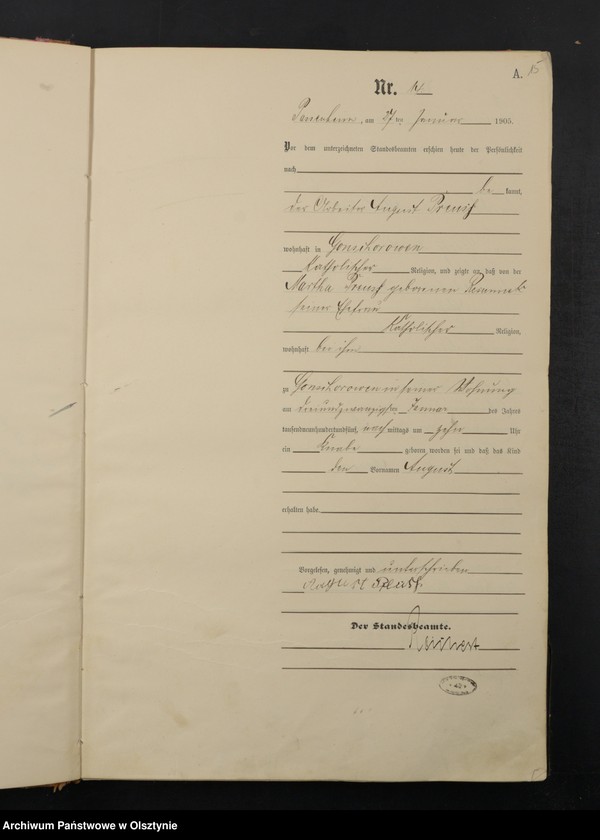 A. 15
Nr.
am 27ten Januar 1905.
Vor dem unterzeichneten Standesbeamten erschien heute der Persönlichkeit
nach
be kannt,
der Arbeiter August Preuß
wohnhaft in Gonschorowen
Katholischer Religion, und zeigte an, daß von der
Martha Preuß geborenen
seiner Ehefrau
Katholischer Religion,
wohnhaft bei ihm
zu Gonschorowen in seiner Wohnung
am dreiundzwanzigsten Januar des Jahres
tausendneunhundertundfünf, nach mittags um zehn Uhr
ein Knabe geboren worden sei und daß das Kind
den Vornamen August
erhalten habe.
Vorgelesen, genehmigt und unterschrieben
August
Der Standesbeamte.
Archiwum Państwowe w Olsztynie